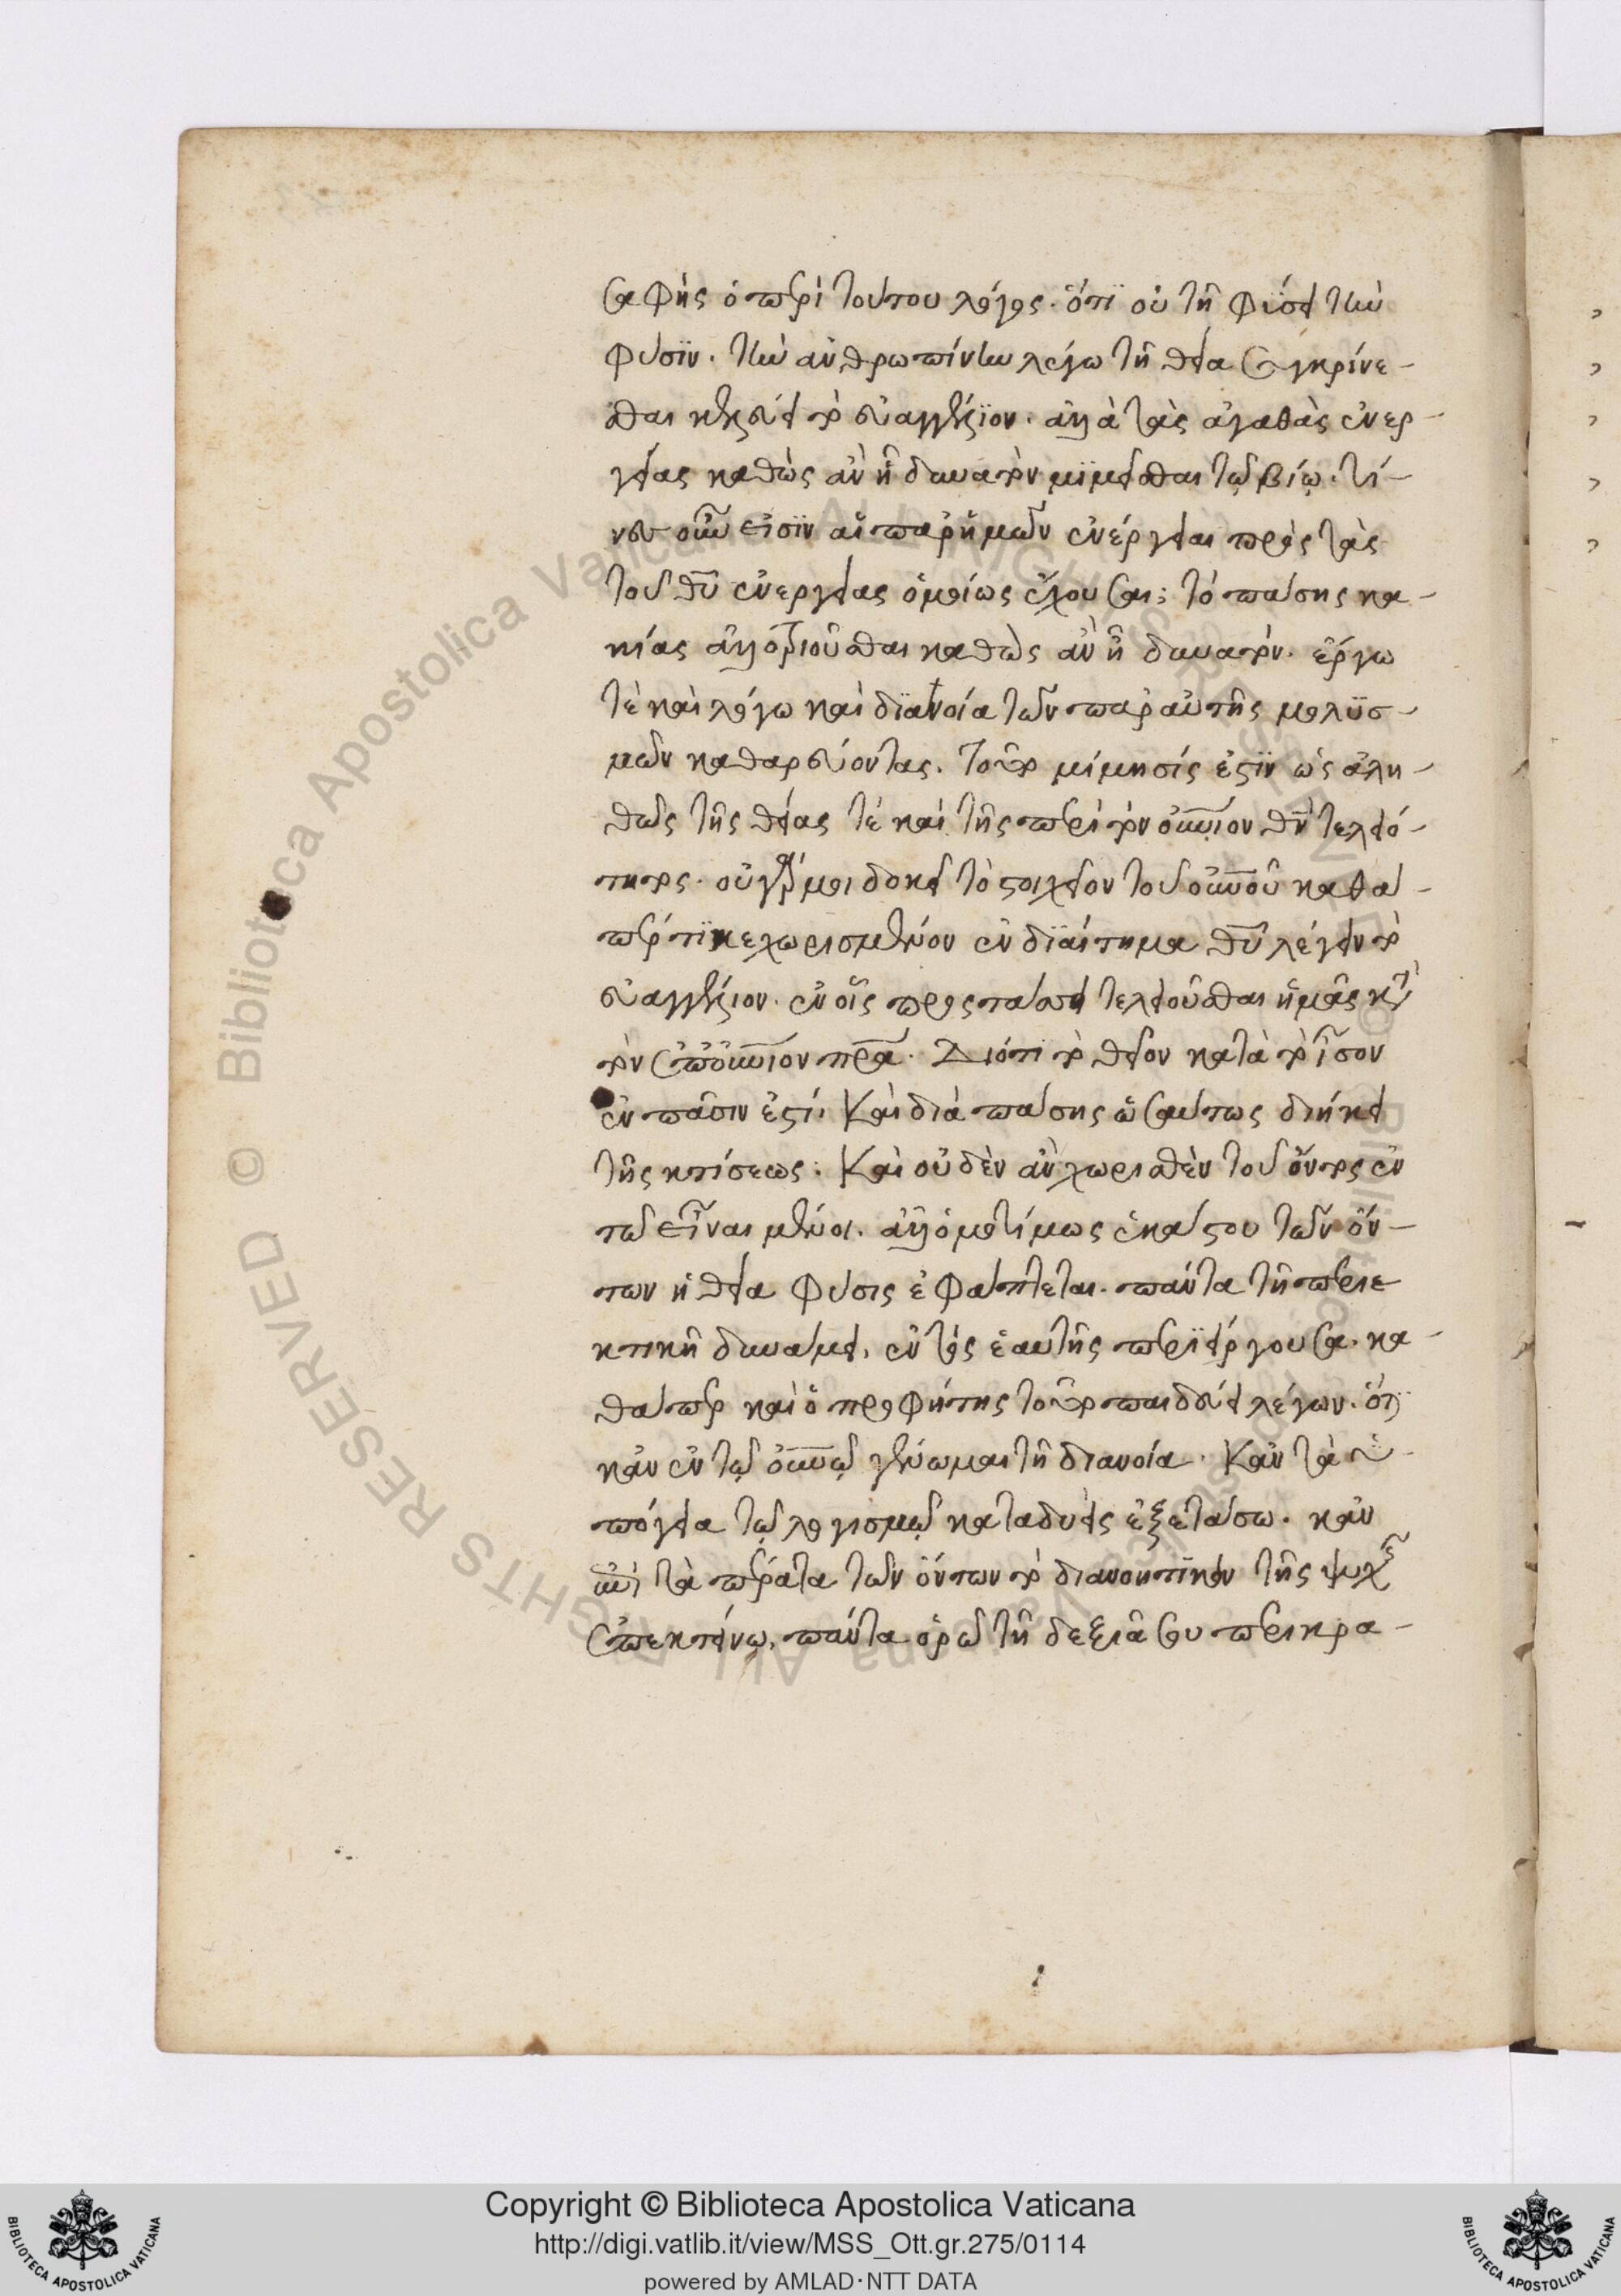 σαφὴς ὁ περὶ τούτου λόγος. ὅτι οὐ τῆ φύσει τὴν
φύσιν. τὴν ἀνθρωπίνην λέγω τῆ θεία συγκρίνε-
σθαι κελεύει τὸ εὐαγγέλιον. ἀλλὰ τὰς ἀγαθὰς ἐνερ-
γείας καθὼς ἂν ἦ δυνατὸν μιμεῖσθαι τῷ βίῳ. τί-
νες οὖν εἰσὶν αἱ παρ ἡμῶν ἐνέργειαι πρὸς τὰς
τοῦ θυ ἐνεργείας ὁμοίως ἔχουσαι; τὸ πάσης κα-
κίας ἀλλοτριοῦσθαι καθὼς ἂν ἦ δυνατὸν. ἔργω
τὲ καὶ λόγω καὶ διανοία τῶν παρ αὐτῆς μολυσ-
μῶν καθαρεύοντας. τοῦτο μίμησίς ἐστὶν ὡς ἀλη-
θῶς τῆς θείας τὲ καὶ τῆς περὶ τὸν οὐνιον θν τελειό-
τητος. οὐ γάρ μοι δοκεῖ τὸ στοιχεῖον τοῦ οὐνοῦ καθά-
πέρ τι κεχωρισμένον ἐνδιαίτημα θυ λέγειν τὸ
εὐαγγέλιον. ἐν οἷς προςτάσσει τελειοῦσθαι ἡμᾶς κατὰ
τὸν ἐπουνιον πρα. Διότι τὸ θεῖον κατὰ τὸ ἶσον
ἐν πᾶσιν ἐστί. Καὶ διὰ πάσης ὡσαύτως διήκει
τῆς κτίσεως. Καὶ οὐδὲν ἂν χωρισθὲν τοῦ ὄντος ἐν
τῶ εἶναι μένοι. ἀλλ ὁμοτίμως ἑκάστου τῶν ὄν-
των ἡ θεία φύσις ἐφάπτεται. πάντα τῆ περιε
κτικῆ δυνάμει, ἐντὸς ἑαυτῆς περιείργουσα. κα-
θάπερ καὶ ὁ προφήτης τοῦτο παιδεύει λέγων. ὅτι
κἂν ἐν τῷ οὐνῷ γένωμαι τῆ διανοία. Κἂν τὰ ὑ-
πόγεια τῷ λογισμῷ καταδυεὶς ἐξετάσω. κἂν
ἐπὶ τὰ πέρατα τῶν ὄντων τὸ διανοητικὸν τῆς ψυχῆς
ἐπεκτείνω, πάντα ὁρῶ τῆ δεξιᾶ σου περικρα-
Copyright © Biblioteca Apostolica Vaticana
http://digi.vatlib.it/view/MSS_Ott.gr.275/0114
powered by AMLAD·NTT DATA